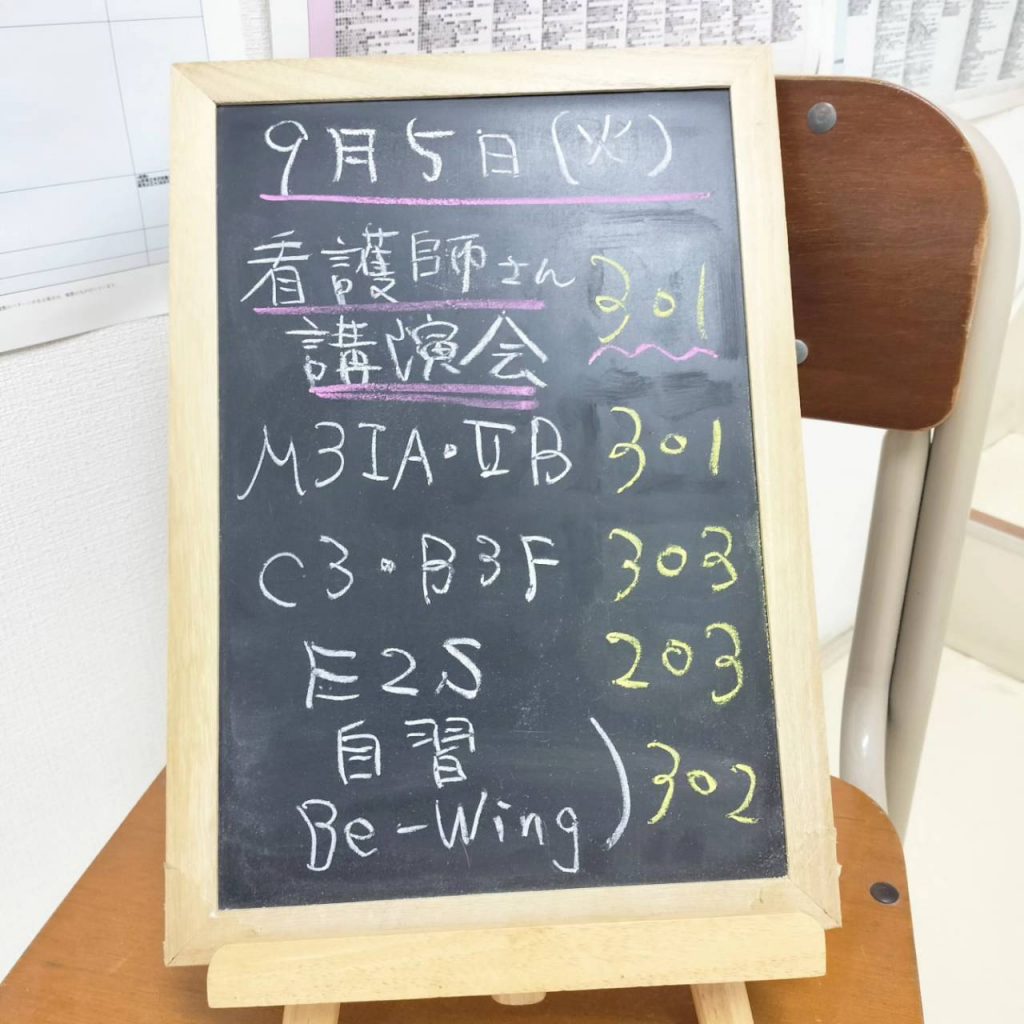 9月5日(火)
看護師さん 301
講演会
M3IA・ⅡB 301
C3・B3F 303
E2S 203
自習
Be-Wing ) 302